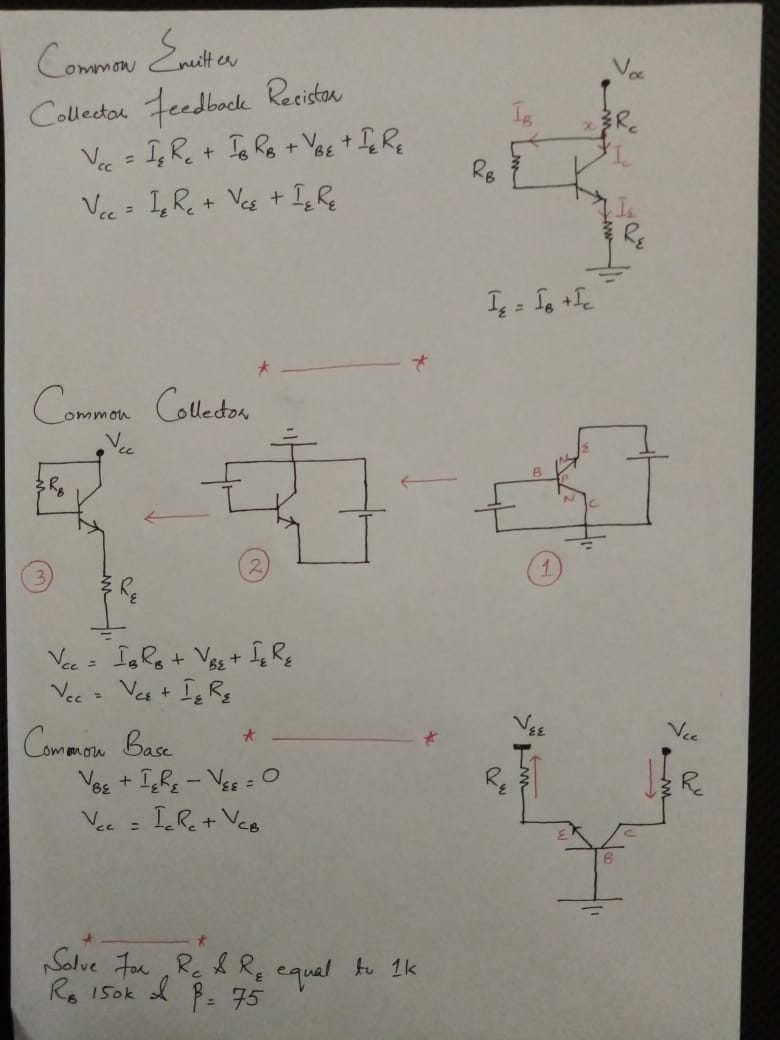 Common Emitter
Collector Feedback Resistor
Vcc = IE Rc + IB RB + VBE + IE RE
Vcc = IE Rc + VCE + IE RE
Vcc
IB
x
Rc
RB
Ic
IE
RE
IE = IB + Ic
* ——— *
Common Collector
Vcc
RB
RE
3
2
B
N
E
P
N
C
1
Vcc = IB RB + VBE + IE RE
Vcc = VCE + IE RE
* ——— *
Common Base
VBE + IE RE - VEE = 0
Vcc = Ic Rc + VCB
VEE
Vcc
RE
Rc
E
C
B
* ——— *
Solve For Rc & RE equal to 1k
RB 150k & β = 75